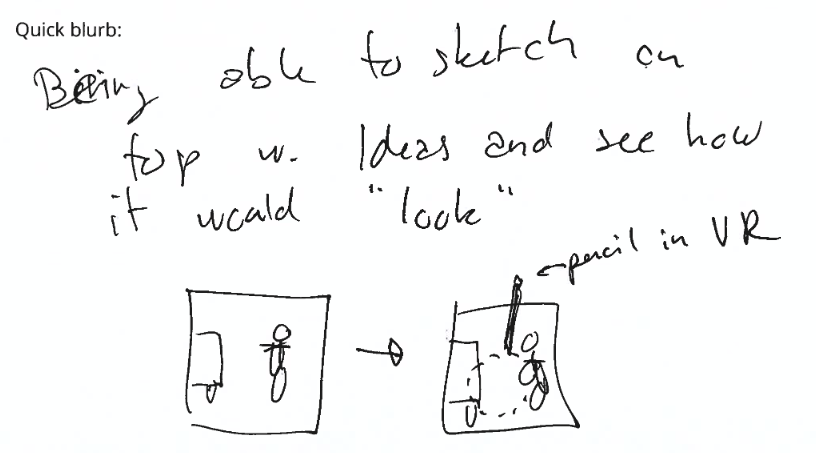 Quick blurb:
Being able to sketch on
top w. Ideas and see how
it would "look"
←pencil in VR